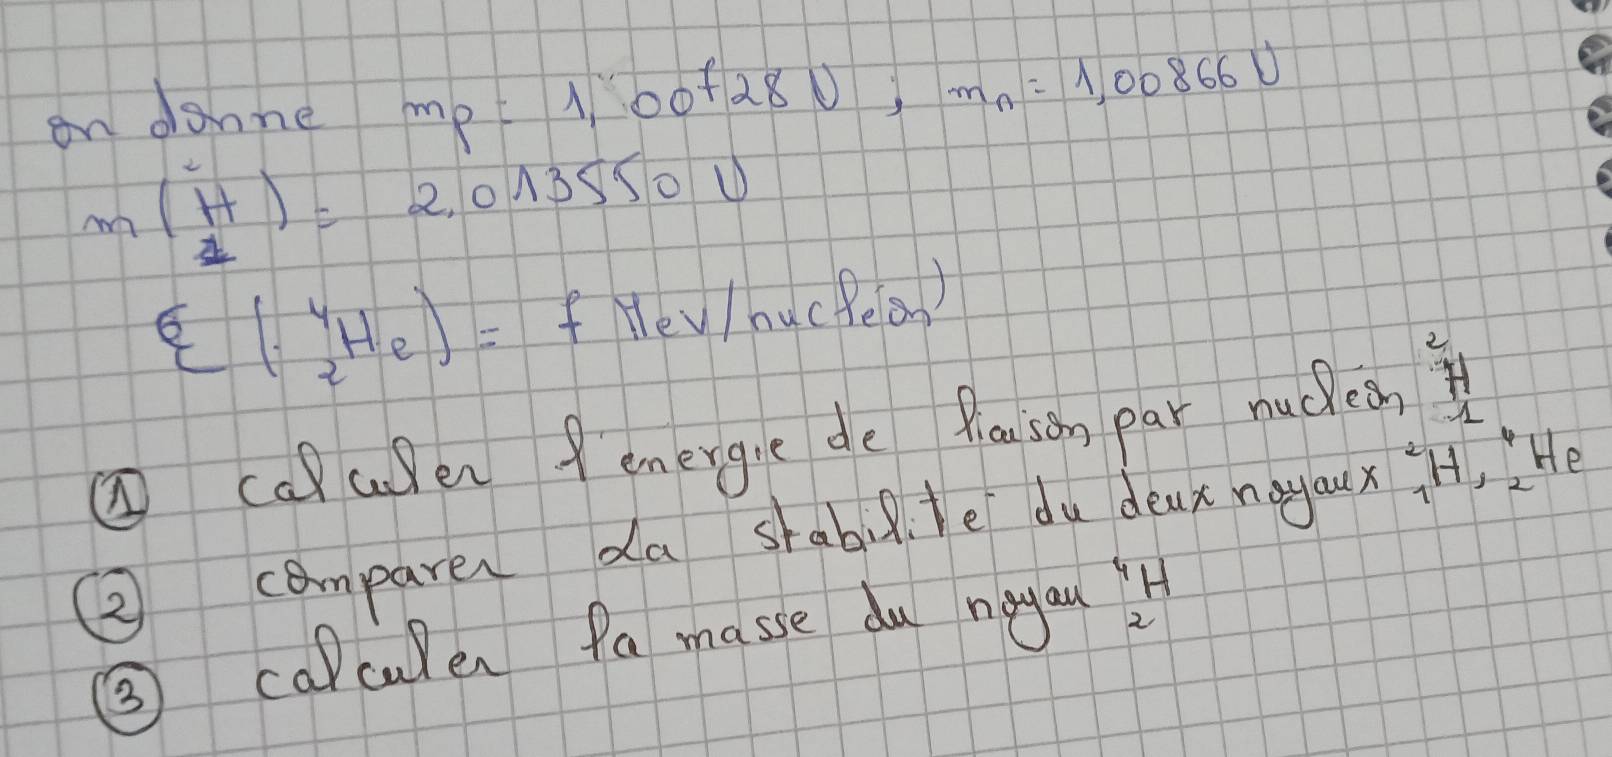 on donne mp = 1,00728 U ; mn = 1,00866 U
m(²₁H) = 2,013550 U
ξ(⁴₂He) = 7 Mev/nucléon
① calculer l'énergie de liaison par nucléon ²₁H
② comparer la stabilité du deux noyaux ²₁H, ⁴₂He
③ calculer la masse du noyau ⁴₂H